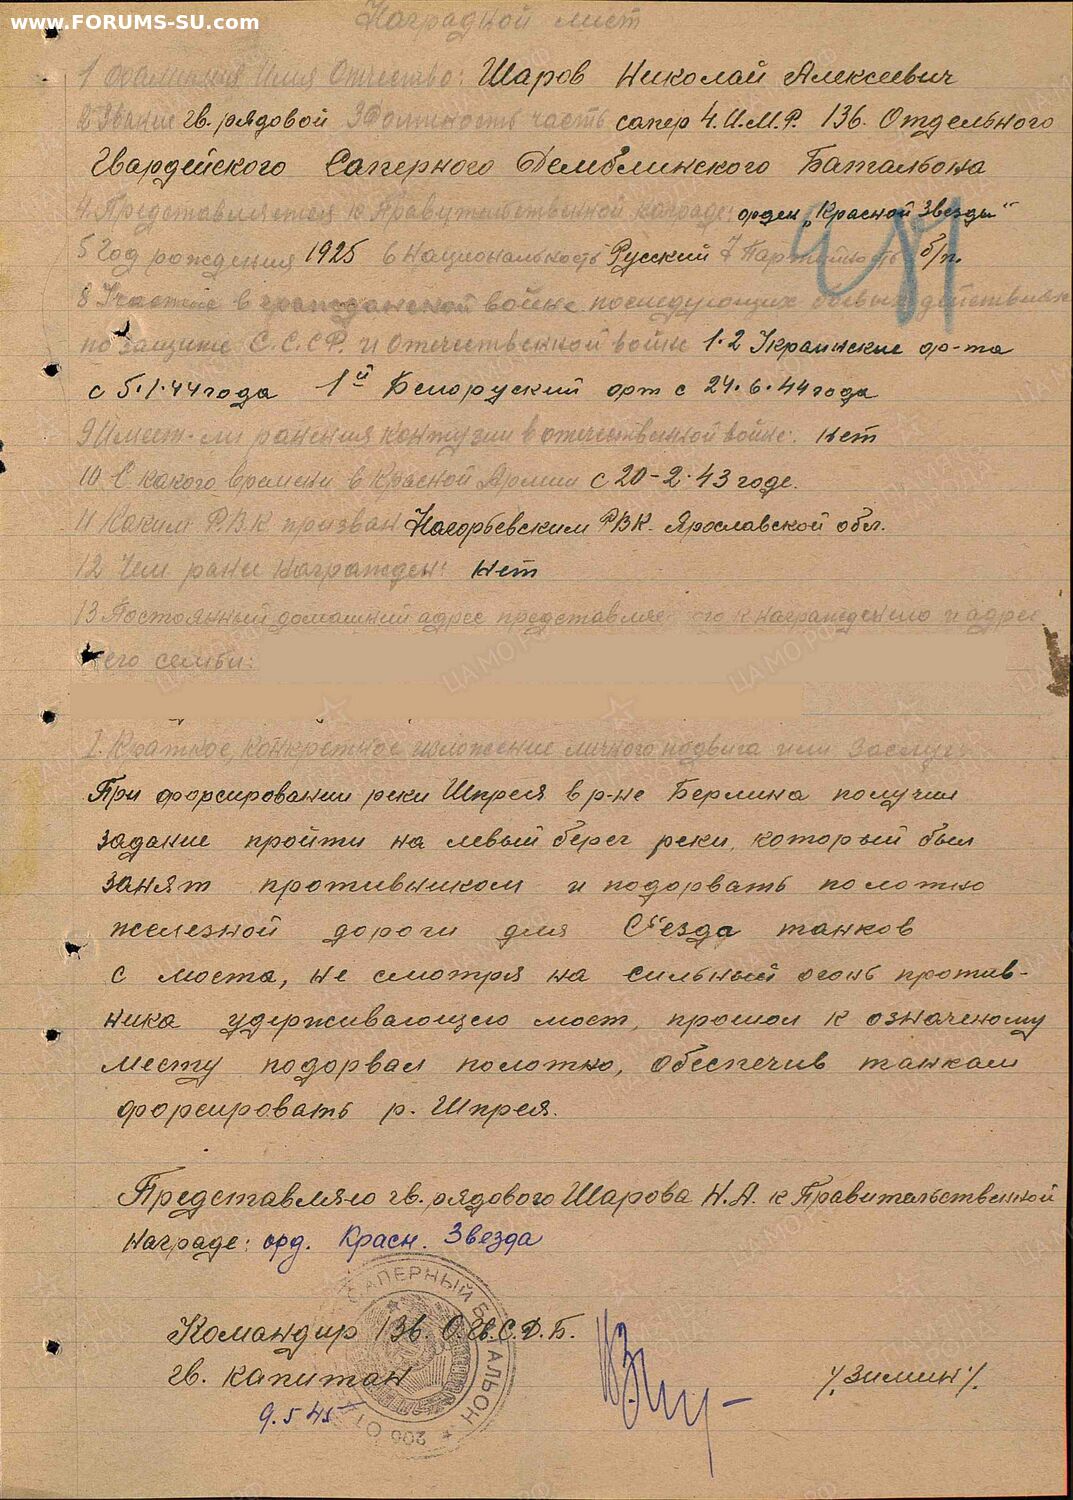 www.FORUMS-SU.com
Наградной лист
1 Фамилия Имя Отчество: Шаров Николай Алексеевич
2 Звание гв. рядовой 3 Должность часть сапер 4. И.М.Р. 136. Отдельного
Гвардейского Саперного Демблинского Батальона
4. Представляется к Правительственной награде: орден „Красной Звезды"
5 Год рождения 1925 6 национальность Русский 7 Партийность б/п.
8 Участие в гражданской войне последующих боевых действиях
по защите С.С.С.Р. и Отечественной войне 1.2 Украинские фр-та
с 5.1.44 года 1й Белоруский фрт с 24.6.44 года
9 Имеет-ли ранения контузии в отечественной войне: нет
10. С какого времени в Красной Армии с 20-2.43 годе.
11 Каким Р.В.К призван Нагорьевским РВК. Ярославской обл.
12 Чем ранее награжден: нет
13 Постоянный домашний адрес представляемого к награждению и адрес
его семьи:
I. Краткое, конкретное изложение личного подвига или заслуг
При форсировании реки Шпрея в р-не Берлина получил
задание пройти на левый берег реки, который был
занят противником и подорвать полотно
железной дороги для съезда танков
с моста, не смотря на сильный огонь против-
ника удерживающего мост, прошол к означеному
месту подорвал полотно, обеспечив танкам
форсировать р. Шпрея.
Представляю гв. рядового Шарова Н.А. к Правительственной
награде: орд. Красн. Звезда
САПЕРНЫЙ БАТАЛЬОН
Командир 136. О.Гв.С.Д.Б.
гв. капитан /.Зимин/.
9.5 45